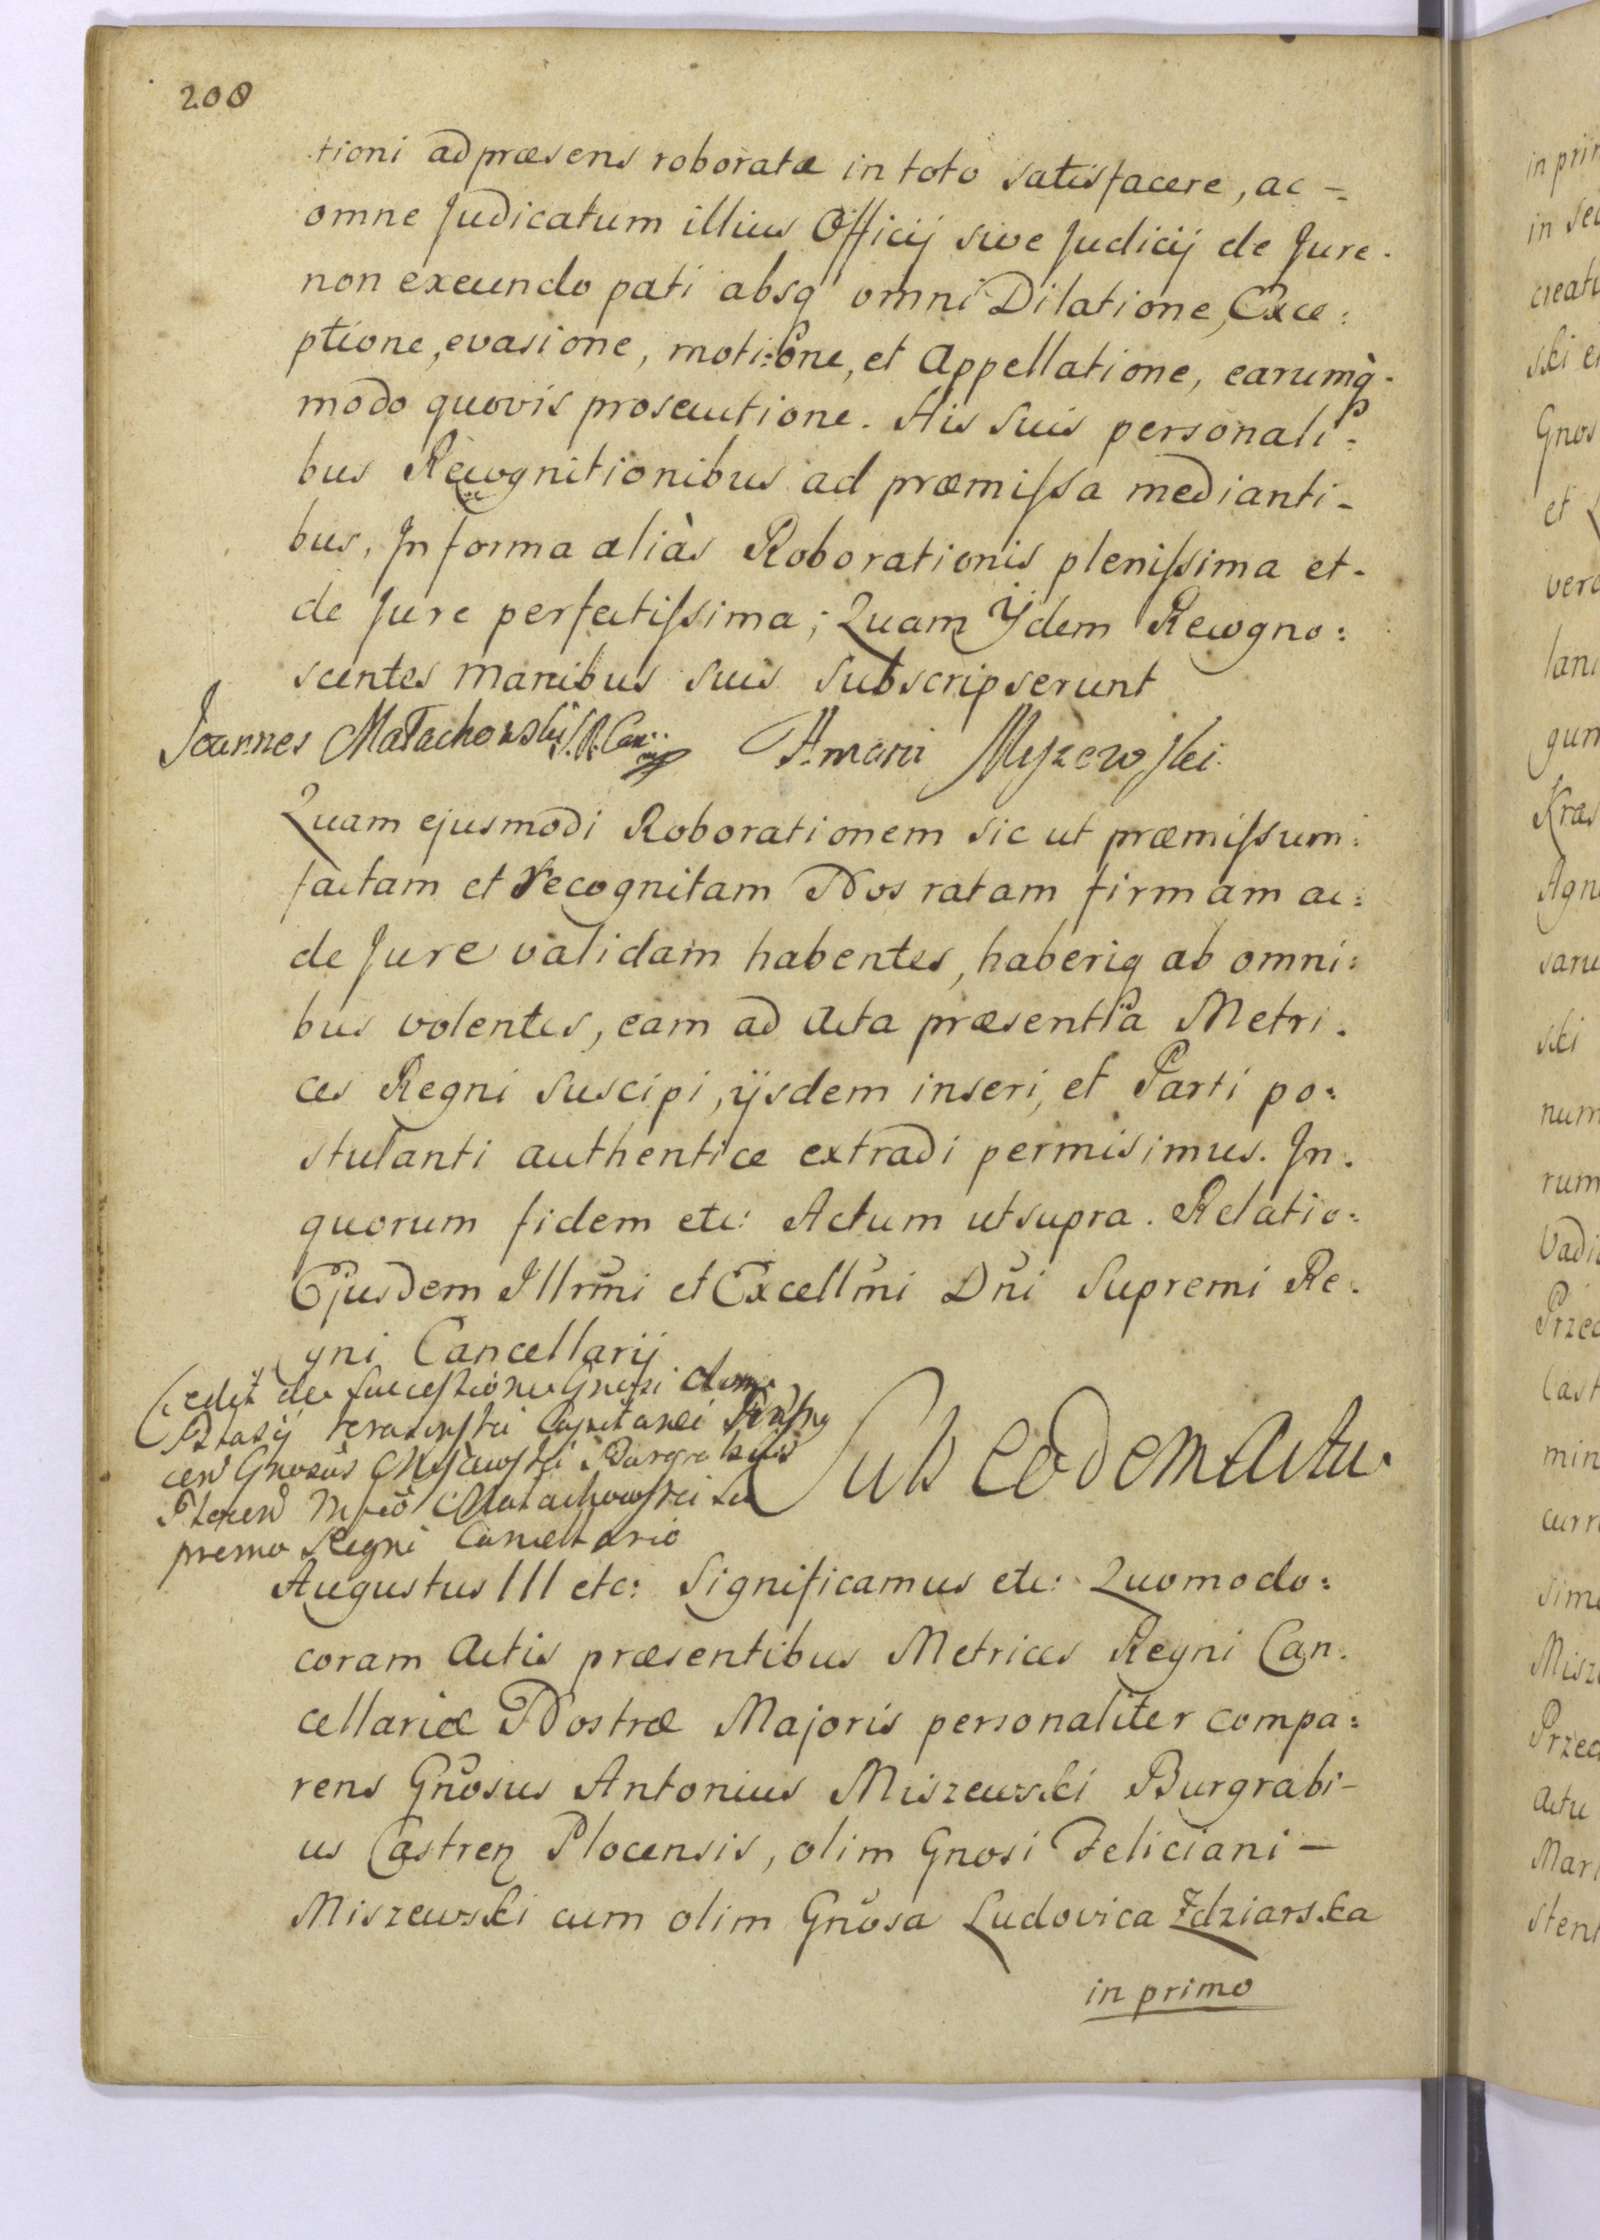 208
tioni ad præsens roboratæ in toto satisfacere, ac =
omne Judicatum illius Officij sive Judicij de Jure.
non exeundo pati absq omni Dilatione, Exce:
ptione, evasione, motione, et Appellatione, earumq̀.
modo quovis prosecutione. His suis personali:
bus Recognitionibus ad præmissa medianti-
bus, In forma aliàs Roborationis plenissima et-
de Jure perfectissima; Quam Ijdem Recogno:
scentes manibus suis subscripserunt
Joannes Małachowski S. R. Can:
A. Myszewski
Quam ejusmodi Roborationem sic ut præmissum:
factam et recognitam Nos ratam firmam ac:
de Jure validam habentes, haberiq ab omni:
bus volentes, eam ad Acta præsentia Metri.
ces Regni suscipi, ijsdem inseri, et Parti po:
stulanti authentice extradi permisimus. In.
quorum fidem etc: Actum ut supra. Relatio:
Ejusdem Illrm̃i et Excellm̃i Dñi Supremi Re:
gni Cancellarij
Cedit de successione Gnosi olim
Capitanei
Gnosus Burgrabius
Małachowski Su
premo Regni Cancellario
Sub eodem Actu.
Augustus III etc: Significamus etc: Quomodo:
coram Actis præsentibus Metrices Regni Can:
cellariæ Nostræ Majoris personaliter compa:
rens Gñosus Antonius Miszewski Burgrabi-
us Castren Plocensis, olim Gnosi Feliciani —
Miszewski cum olim Gñosa Ludovica Zdziarska
in primo